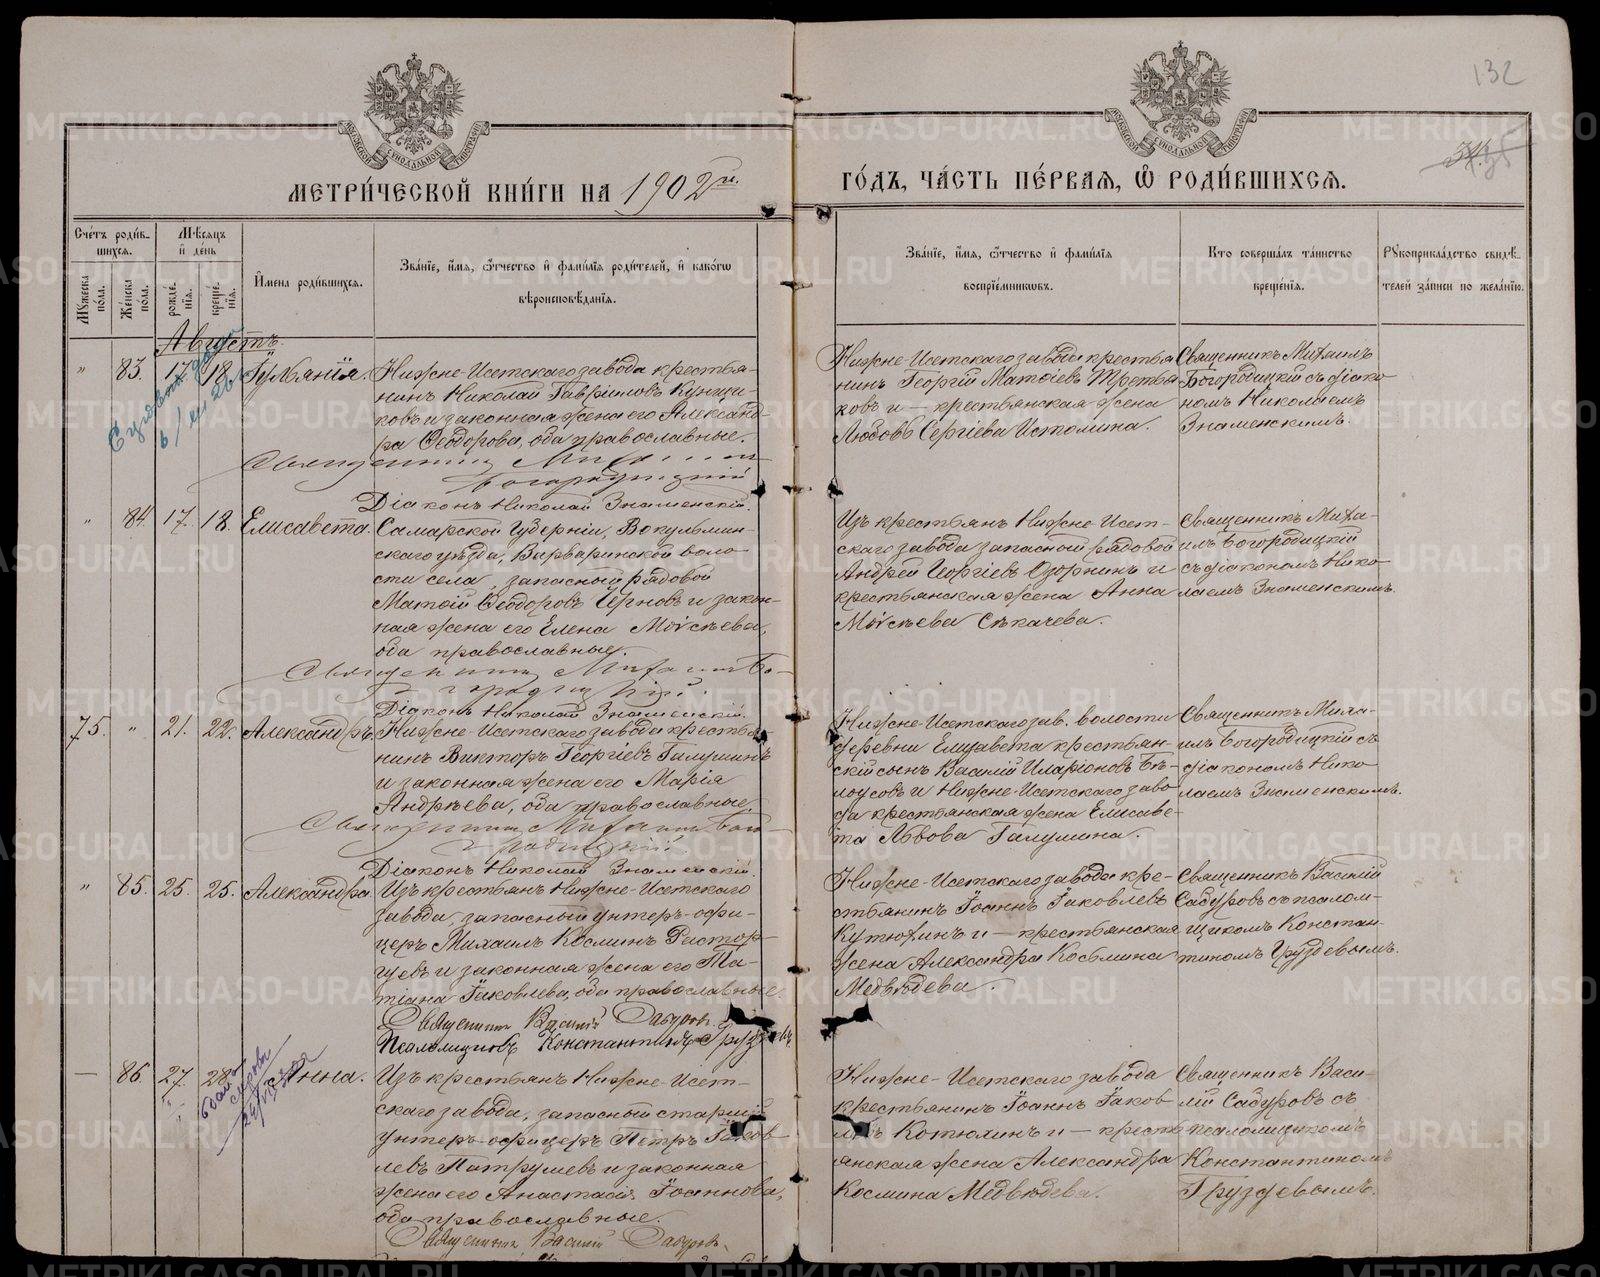 132
МЕТРИ́ЧЕСКОЙ КНИ́ГИ НА 1902й.
ГО́ДЪ, ЧА́СТЬ ПЕ́РВАЯ, Ѡ РОДИ́ВШИХСЯ.
Сче́тъ роди́в-
шихся.
Му́жеска по́ла.
Же́нска по́ла.
Мѣ́сяцъ и де́нь
рожде́нїя.
креще́нїя.
И́мена роди́вшихся.
Зва́нїе, и́мя, ѻ́тчество и фами́лїя роди́телей, и како́гѡ
вѣроисповѣ́данїя.
Зва́нїе, и́мя, ѻ́тчество и фами́лїя
воспрїе́мниковъ.
Кто соверша́лъ та́инство
креще́нїя.
Рꙋкоприкла́дство свидѣ́-
телей за́писи по жела́нїю.
Августъ.
" 83. 17. 18.
Нижне-Исетскаго завода крестья-
нинъ Николай Гаврииловъ
ковъ и законная жена его Александ-
ра Ѳеодорова, оба православные.
Священникъ Михаилъ
Богородицкій
Діаконъ Николай Знаменскій.
Нижне-Исетскаго завода крестья-
нинъ Георгій Матѳіевъ Третья-
ковъ и — крестьянская жена
Любовь Сергіева Истомина.
Священникъ Михаилъ
Богородицкій съ діако-
номъ Николаемъ
Знаменскимъ.
" 84. 17. 18. Елисавета.
Самарской Губерніи,
скаго уѣзда, Варваринской воло-
сти села, запасный рядовой
Матѳій Ѳеодоровъ и закон-
ная жена его Елена Моѵсѣева,
оба православные.
Священникъ Михаилъ Бо-
городицкій.
Діаконъ Николай Знаменскій.
Изъ крестьянъ Нижне-Исет-
скаго завода запасной рядовой
Андрей Георгіевъ Озорнинъ и
крестьянская жена Анна
Моѵсѣева Сѣкачева.
Священникъ Миха-
илъ Богородицкій
съ діакономъ Нико-
лаемъ Знаменскимъ.
75. " 21. 22. Александръ
Нижне-Исетскаго завода крестья-
нинъ Викторъ Георгіевъ Галушинъ
и законная жена его Марія
Андреева, оба православные.
Священникъ Михаилъ Бого-
родицкій
Діаконъ Николай Знаменскій.
Нижне-Исетскаго зав. волости
деревни Елизавета крестьян-
скій сынъ Василій Иларіоновъ Бѣ-
лоусовъ и Нижне-Исетскаго заво-
да крестьянская жена Елисаве-
та Львова Галушина.
Священникъ Миха-
илъ Богородицкій съ
діакономъ Нико-
лаемъ Знаменскимъ.
" 85. 25. 25. Александра.
Изъ крестьянъ Нижне-Исетскаго
завода, запасный унтеръ-офи-
церъ Михаилъ Косминъ Растор-
гуевъ и законная жена его Та-
тіана Іаковлева, оба православные.
Священникъ Василій Садуровъ.
Псаломщикъ Константинъ Груздевъ
Нижне-Исетскаго завода кре-
стьянинъ Іоаннъ Іаковлевъ
Кутюхинъ и — крестьянская
жена Александра Косьмина
Медвѣдева.
Священникъ Василій
Садуровъ съ псалом-
щикомъ Констан-
тиномъ Груздевымъ.
— 86. 27. 28. Анна.
Изъ крестьянъ Нижне-Исет-
скаго завода, запасной старшій
унтеръ-офицеръ Петръ Іаков-
левъ Патрушевъ и законная
жена его Анастасія Іоаннова,
оба православные.
Священникъ Василій Садуровъ.
Нижне-Исетскаго завода
крестьянинъ Іоаннъ Іаков-
левъ Котюхинъ и — кресть-
янская жена Александра
Космина Медвѣдева.
Священникъ Васи-
лій Садуровъ съ
псаломщикомъ
Константиномъ
Груздевымъ.
METRIKI.GASO-URAL.RU